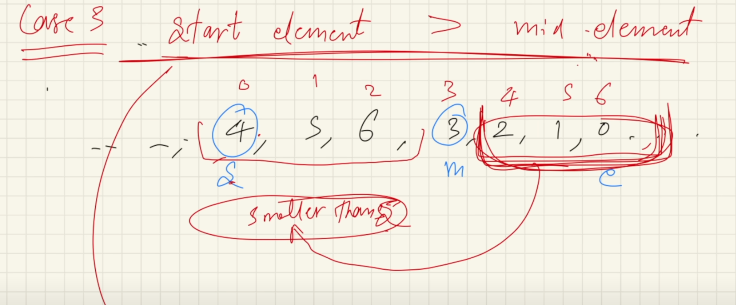 Case 3 .. Start element > mid-element
0 1 2 3 4 5 6
-- -, [4, 5, 6, 3, [2, 1, 0.,]
S m e
Smaller than S